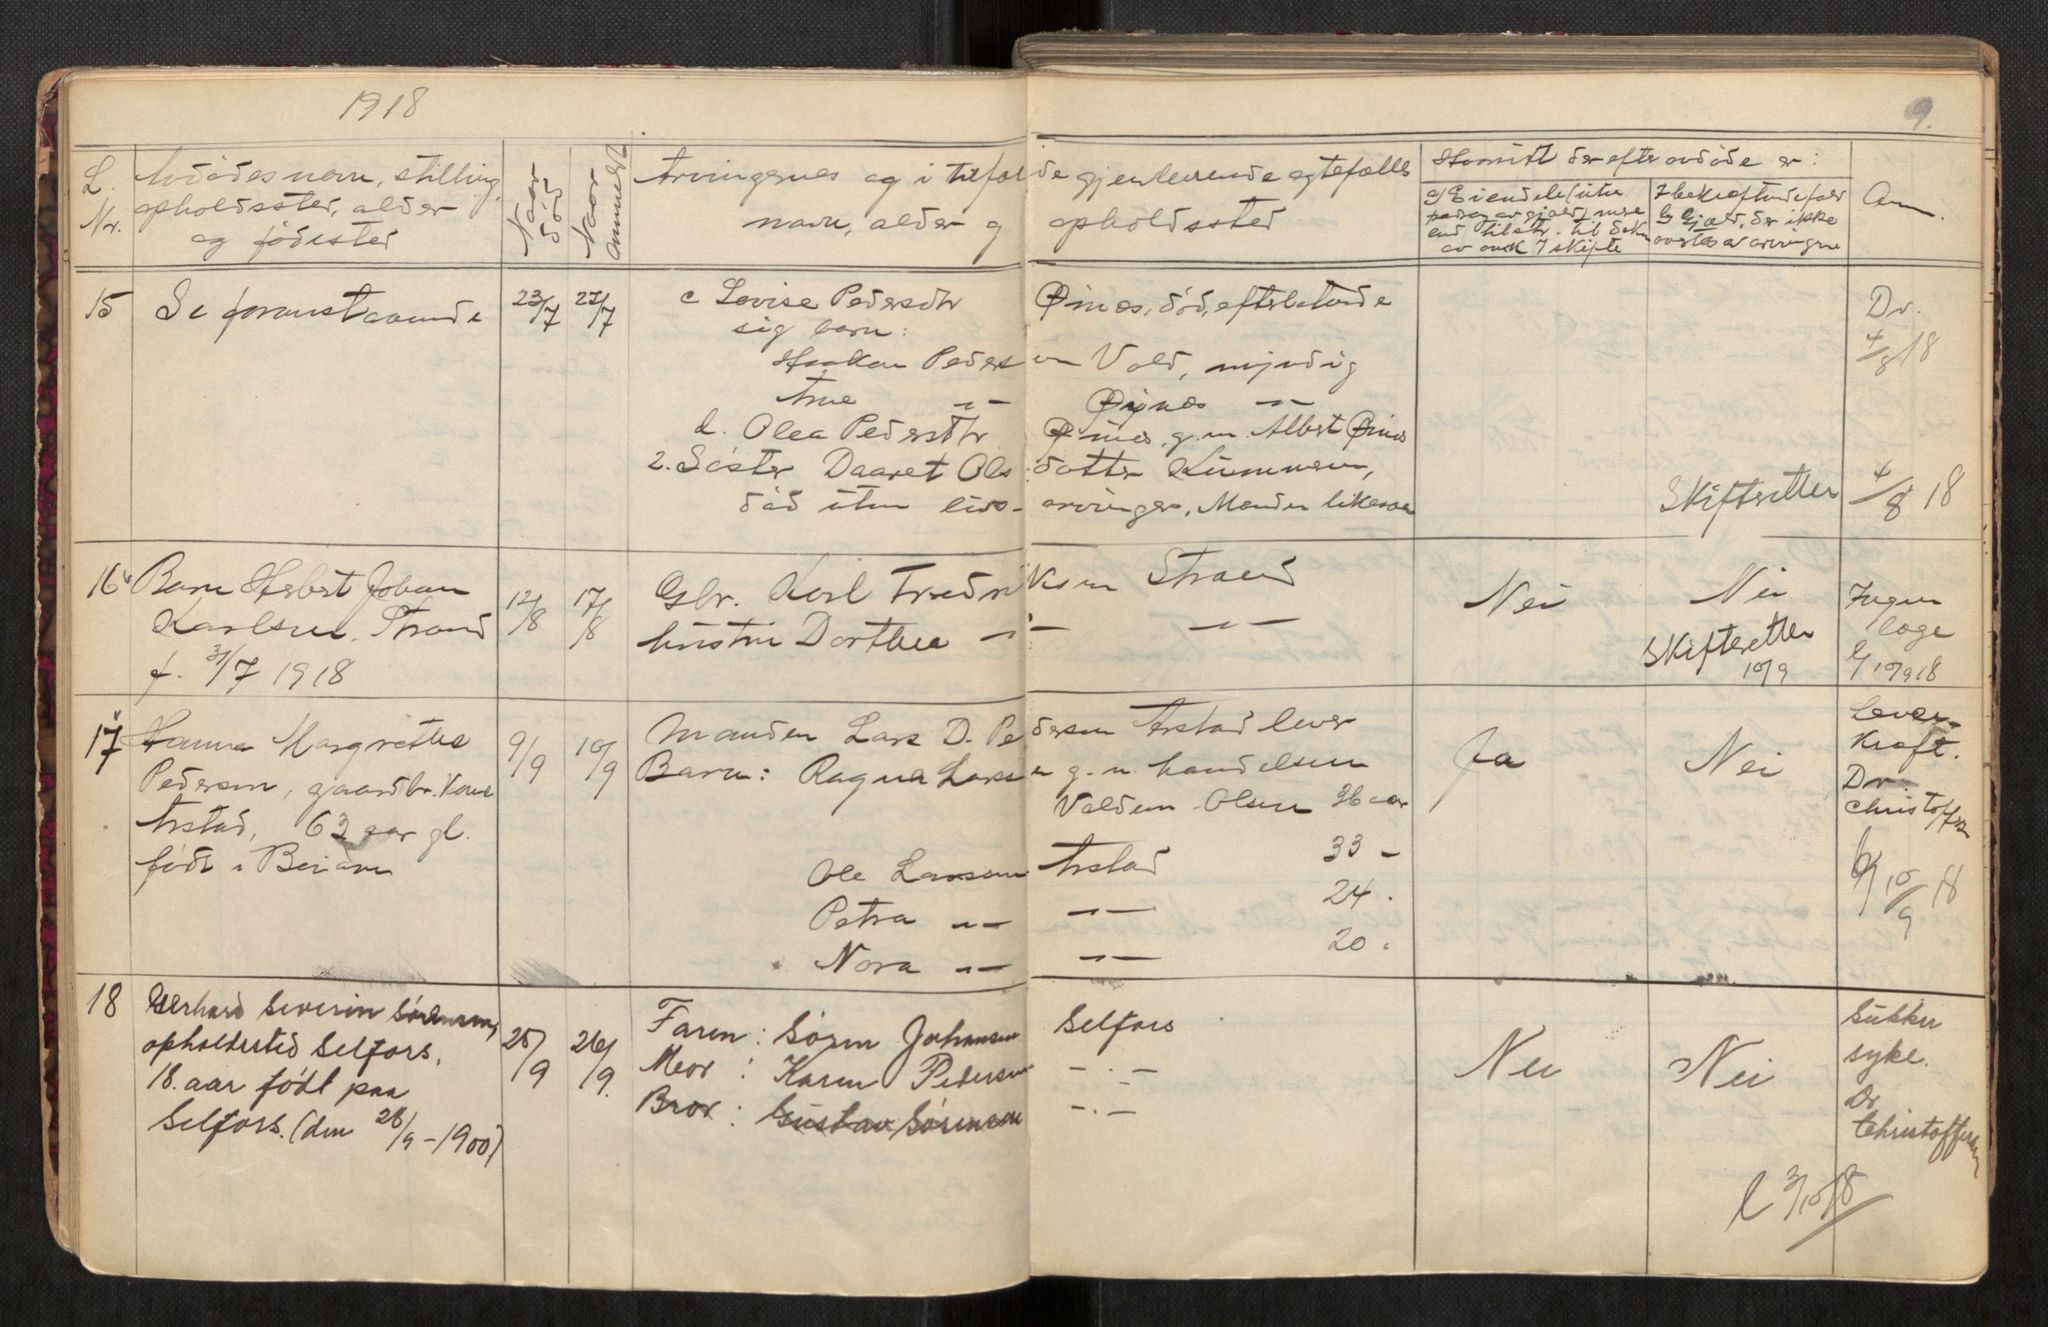 1918
9.
L. Nr.
Avdødes navn, stilling,
opholdssted, alder
og fødested
Naar død
Naar anmeldt
Arvingernes og i tilfælde gjenlevende egtefælles
navn, alder og opholdssted
Hvorvidt der efter avdøde er:
Anm.
15 Se foranstaaende 23/7 27/7 c Lovise Pedersdtr Øines, død, efterlatende
sig barn:
Haakon Pedersen Vold, myndig
Arne -"- Øines -"-
d. Olea Pedersdtr Øines, g.m. Albert Øines
2. Søster Daaret Olsdatter
død uten livsarvinger, Manden likesaa
Skifteretten 4/8 18
Dr.
4/8 18
16 Barn Herbert Johan
Karlsen, Strand
f. 31/7 1918
12/8 17/8
Gbr. Karl Fredriksen Strand
hustru Dorthea -"- -"-
Nei Nei
Skifteretten
10/9
Ingen
læge
10/9 18
17 Hanna Margrethe
Pedersen, gaardbr. kone
Arstad, 63 aar gl.
født i Beiarn
9/9 10/9
Manden Lars D. Pedersen Arstad lever
Barn: Ragna Larsen g.m. handelsm
Valdem. Olsen 36 aar
Ole Larsen Arstad 33 -
Petra -"- -"- 24 -
Nora -"- -"- 20 -
Ja Nei
Leverkræft.
Dr.
Christoffersen
10/9 18
18 Gerhard Severin Sørensen,
opholdssted Selfors,
18. aar født paa
Selfors. (den 26/9-1900)
25/9 26/9.
Faren: Søren Johansen Selfors
Mor: Karen Pedersen -"-
Bror: Gustav Sørensen -"-
Nei Nei
Sukker
syke.
Dr
Christoffersen
3/10 18